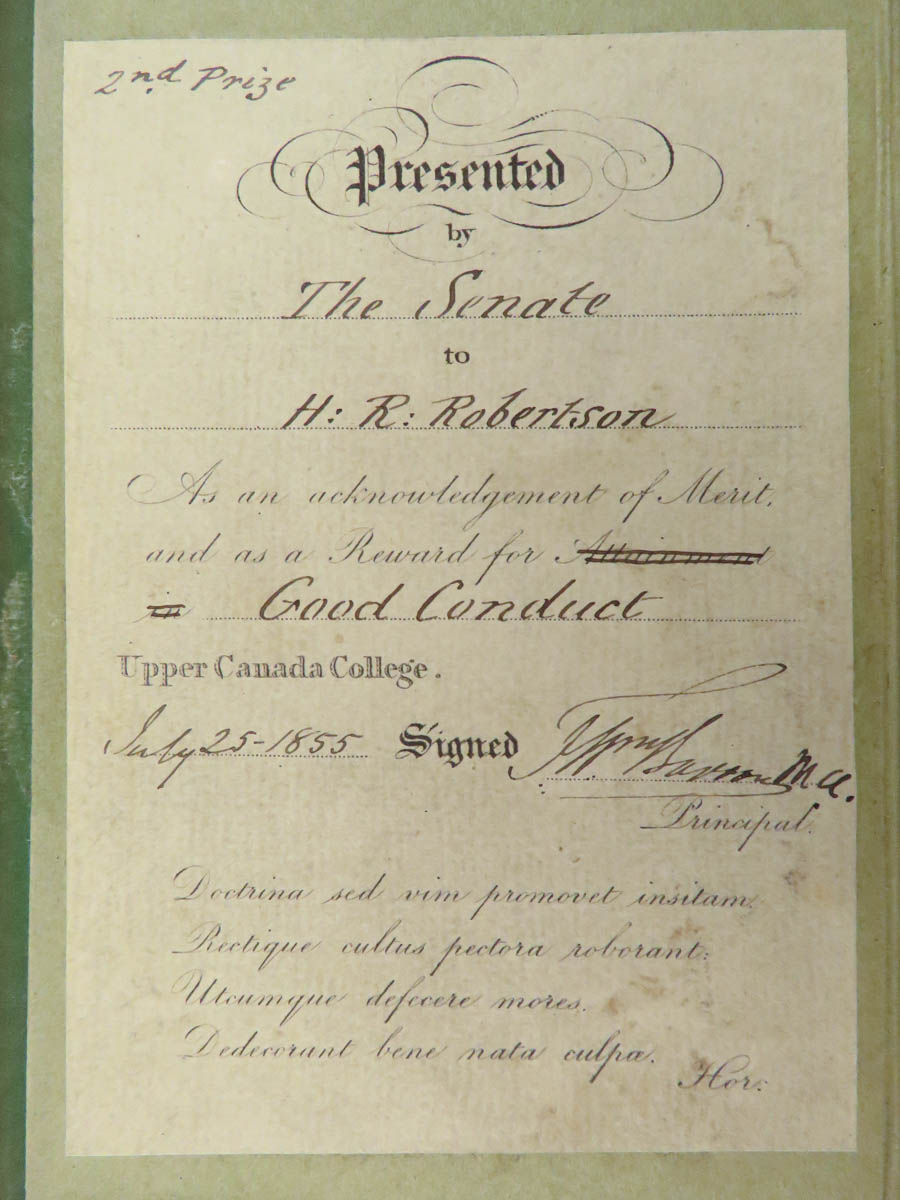 2nd. Prize
Presented
by
The Senate
to
H: R: Robertson
As an acknowledgement of Merit,
and as a Reward for Attainment
in Good Conduct
Upper Canada College.
July 25-1855 Signed F. W. Barron M.A.
Principal.
Doctrina sed vim promovet insitam,
Rectique cultus pectora roborant:
Utcumque defecere mores,
Dedecorant bene nata culpæ.
Hor: